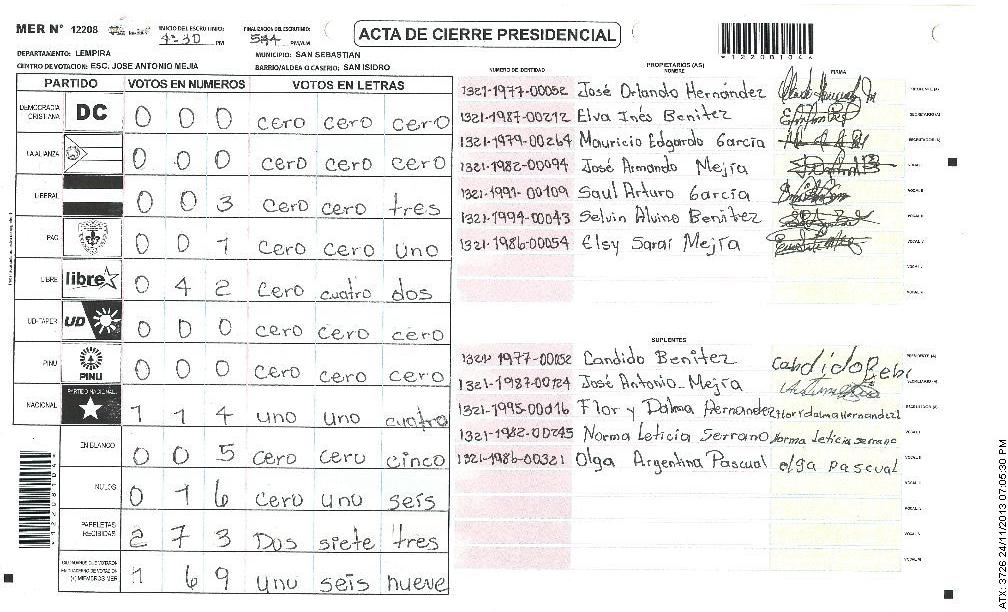 MER N° 12208
INICIO DEL ESCRUTINIO: 4:30 PM
FINALIZACION DEL ESCRUTINIO: PM/A.M
ACTA DE CIERRE PRESIDENCIAL
*12208104*
DEPARTAMENTO: LEMPIRA
MUNICIPIO: SAN SEBASTIAN
CENTRO DE VOTACION: ESC. JOSE ANTONIO MEJIA
BARRIO/ALDEA O CASERIO: SAN ISIDRO
PARTIDO VOTOS EN NUMEROS VOTOS EN LETRAS
DEMOCRACIA CRISTIANA DC 0 0 0 cero cero cero
LA ALIANZA 0 0 0 cero cero cero
LIBERAL 0 0 3 cero cero tres
PAC 0 0 1 cero cero uno
LIBRE libre 0 4 2 cero cuatro dos
UD-FAPER UD 0 0 0 cero cero cero
PINU PINU 0 0 0 cero cero cero
NACIONAL PARTIDO NACIONAL 1 1 4 uno uno cuatro
EN BLANCO 0 0 5 cero cero cinco
NULOS 0 1 6 cero uno seis
PAPELETAS RECIBIDAS 2 7 3 Dos siete tres
CIUDADANOS QUE VOTARON EN CUADERNO DE VOTACION (+) MIEMBROS MER 1 6 9 uno seis nueve
NUMERO DE IDENTIDAD PROPIETARIOS (AS) NOMBRE FIRMA
1321-1977-00052 José Orlando Hernández
1321-1987-00212 Elva Inés Benitez
1321-1979-00264 Mauricio Edgardo García
1321-1982-00094 José Armando Mejía
1321-1991-00109 Saul Arturo García
1321-1994-00043 Selvin Alvino Benitez
1321-1986-00054 Elsy Sarai Mejía
SUPLENTES
1977-00052 Candido Benitez
José Antonio Mejía
1321-1995-00016 Flor y Dalma Hernandez Flor y dalma Hernandez
1321-1982-00245 Norma Leticia Serrano Norma Leticia serrano
1321-1986-00321 Olga Argentina Pascual olga pascual
*12208104*
ATX: 3726 24/11/2013 07:05:30 PM